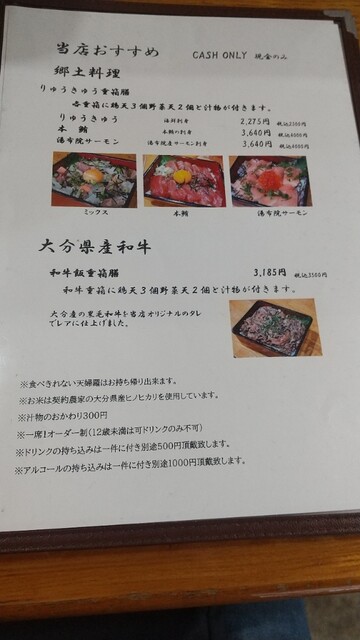 当店おすすめ CASH ONLY 現金のみ
郷土料理
りゅうきゅう重箱膳
各重箱に鶏天3個野菜天2個と汁物が付きます。
りゅうきゅう 海鮮刺身 2,275円 税込2500円
本鮪 本鮪の刺身 3,640円 税込4000円
湯布院サーモン 湯布院産サーモン刺身 3,640円 税込4000円
ミックス 本鮪 湯布院サーモン
大分県産和牛
和牛飯重箱膳 3,185円 税込3500円
和牛重箱に鶏天3個野菜天2個と汁物が付きます。
大分産の黒毛和牛を当店オリジナルのタレ
でレアに仕上げました。
※食べきれない天婦羅はお持ち帰り出来ます。
※お米は契約農家の大分県産ヒノヒカリを使用しています。
※汁物のおかわり300円
※一席1オーダー制(12歳未満は可ドリンクのみ不可)
※ドリンクの持ち込みは一件に付き別途500円頂戴致します。
※アルコールの持ち込みは一件に付き別途1000円頂戴致します。